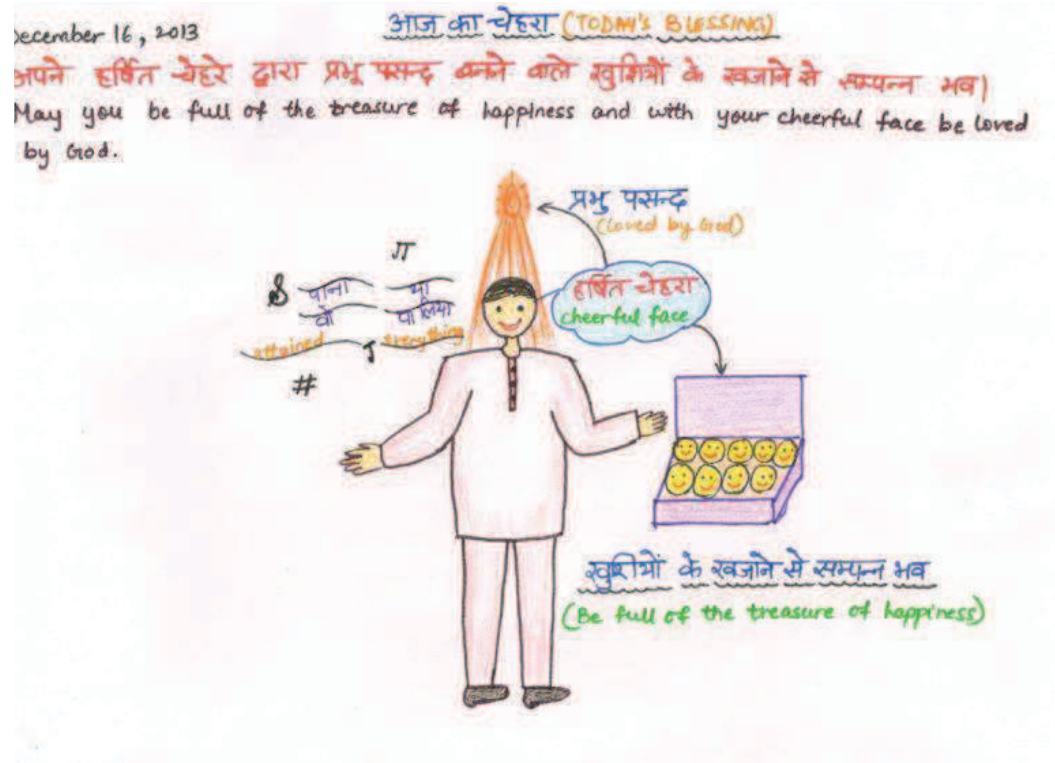 December 16, 2013
आज का चेहरा (TODAY'S BLESSING)
अपने हर्षित चेहरे द्वारा प्रभु पसन्द बनने वाले खुशियों के खजाने से सम्पन्न भव।
May you be full of the treasure of happiness and with your cheerful face be loved
by God.
प्रभु पसन्द
(Loved by God)
हर्षित चेहरा
cheerful face
पाना था
वो पा लिया
attained everything
#
खुशीयों के खजाने से सम्पन्न भव
(Be full of the treasure of happiness)